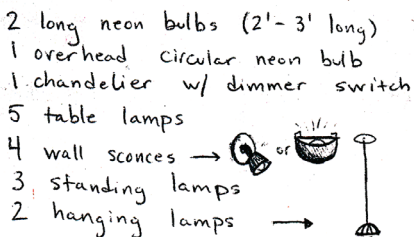 2 long neon bulbs (2'-3' long)
1 overhead circular neon bulb
1 chandelier w/ dimmer switch
5 table lamps
4 wall sconces → or
3 standing lamps
2 hanging lamps →